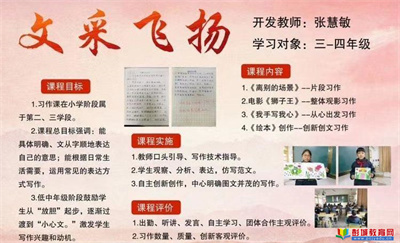 文采飞扬
开发教师：张慧敏
学习对象：三-四年级
课程目标
1.习作课在小学阶段属
于第二、三学段。
2.课程总目标强调：能
具体明确、文从字顺地表达
自己的意思；能根据日常生
活需要，运用常见的表达方
式写作。
3.低中年级阶段鼓励学
生从“放胆”起步，逐渐过
渡到“小心文。”激发学生
写作兴趣和动机。
课程实施
1.教师口头引导、写作技术指导。
2.学生观察、分析、表达，仿写范文。
3.自主创新创作，中心明确图文并茂的写作。
课程评价
1.出勤、听讲、发言、自主学习、团体合作主观评价。
2.习作数量、质量、创新客观评价。
课程内容
1.《离别的场景》--片段习作
2.电影《狮子王》--整体观影习作
3.《我手写我心》--从心出发习作
4.《绘本》创作--创新创文习作
彭城教育网